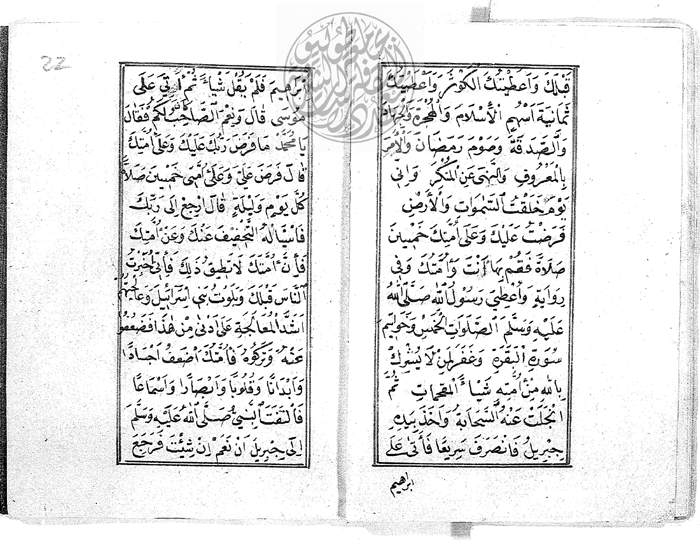 قَبْلَكَ وَأَعْطَيْتُكَ الْكَوْثَرَ وَأَعْطَيْتُكَ
ثَمَانِيَةَ أَسْهُمٍ الْأِسْلَامَ وَالْهِجْرَةَ وَالْجِهَادَ
وَالصَّدَقَةَ وَصَوْمَ رَمَضَانَ وَالْأَمْرَ
بِالْمَعْرُوفِ وَالنَّهْيَ عَنِ الْمُنْكَرِ وَاِنّى
يَوْمَ خَلَقْتُ السَّمٰوَاتِ وَالْأَرْضَ
فَرَضْتُ عَلَيْكَ وَعَلَى أُمَّتِكَ خَمْسِينَ
صَلَاةً فَقُمْ بِهَا أَنْتَ وَأُمَّتُكَ وَفِى
رِوَايَةٍ وَأُعْطِيَ رَسُولُ اللهِ صَلَّى اللهُ
عَلَيْهِ وَسَلَّمَ الصَّلَوَاتِ الْخَمْسَ وَخَوَاتِيمَ
سُورَةِ الْبَقَرَةِ وَغُفِرَ لِمَنْ لَا يُشْرِكُ
بِاللهِ مِنْ أُمَّتِهِ شَيْاءً الْمُقْحِمَاتِ ثُمَّ
انْجَلَتْ عَنْهُ السَّحَابَةُ وَأَخَذَ بِيَدِهِ
جِبْرِيلُ فَانْصَرَفَ سَرِيعًا فَأَتَى عَلَى
ابراهيم
22
اِبْرَاهِيمَ فَلَمْ يَقُلْ شَيْاءً ثُمَّ أَتَى عَلَى
مُوسَى قَالَ وَنِعْمَ الصَّاحِبُ لَكُمْ فَقَالَ
يَا مُحَمَّدُ مَا فَرَضَ رَبُّكَ عَلَيْكَ وَعَلَى أُمَّتِكَ
قَالَ فَرَضَ عَلَيَّ وَعَلَى أُمَّتِى خَمْسِينَ صَلَاةً
كُلَّ يَوْمٍ وَلَيْلَةٍ قَالَ ارْجِعْ اِلَى رَبِّكَ
فَاسْئَالْهُ التَّخْفِيفَ عَنْكَ وَعَنْ أُمَّتِكَ
فَاِنَّ أُمَّتَكَ لَا تُطِيقُ ذٰلِكَ فَاِنِّى خَبَرْتُ
النَّاسَ قَبْلَكَ وَبَلَوْتُ بَنِى اِسْرَائِيلَ وَعَالَجْتُهُمْ
اَشَدَّ الْمُعَالَجَةِ عَلَى اَدْنَى مِنْ هٰذَا فَضَعُفُوا
عَنْهُ وَتَرَكُوهُ فَأُمَّتُكَ اَضْعَفُ اَجْسَادًا
وَاَبْدَانًا وَقُلُوبًا وَاَبْصَارًا وَاَسْمَاعًا
فَالْتَفَتَ النَّبِىُّ صَلَّى اللهُ عَلَيْهِ وَسَلَّمَ
اِلَى جِبْرِيلَ اَنْ نَعَمْ اِنْ شِئْتَ فَرَجَعَ